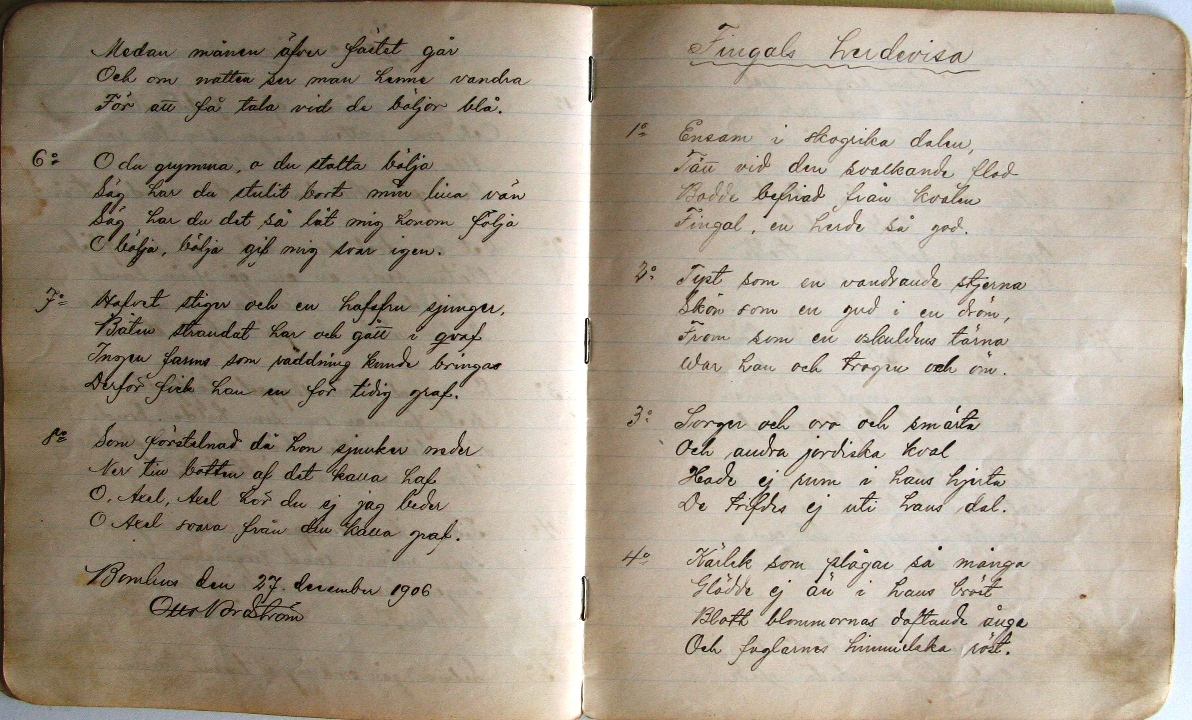 Medan månen öfver fästet går
Och om natten ser man henne vandra
För att få tala vid de böljor blå.
6º O du grymma, o du stolta bölja
Säg har du stulit bort min lilla vän
Säg har du det så låt mig honom följa
O bölja, bölja gif mig svar igen.
7º Hafvet stiger och en hafsfru sjunger,
Båten strandat har och gått i qvaf
Ingen fanns som räddning kunde bringa
Derför fick han en för tidig graf.
8º Som förstelnad då hon sjunker neder
Ner till botten af det kalla haf
O, Axel, Axel hör du ej jag beder
O Axel svara från din kalla graf.
Bomhus den 27. december 1906
Otto
Fingals herdevisa
1º Ensam i skogrika dalen,
Tätt vid den svalkande flod
Bodde befriad från kvalen
Fingal, en herde så god.
2º Tyst som en vandrande stjerna
Skön som en gud i en dröm,
From som en oskuldens tärna
War han och trogen och öm.
3º Sorger och oro och smärta
Och andra jordiska kval
Hade ej rum i hans hjerta
De trifdes ej uti hans dal.
4º Kärlek som plågar så många
Glödde ej än i hans bröst
Blott blommornas doftande ånga
Och foglarnes himmelska röst.